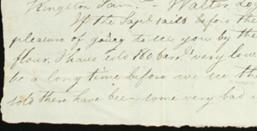 Kingston Jam. - Walter
If the Sapl sails before the
pleasure of going to see you by the
flour. I have sold 180 bars. very low
be a long time before we see the
sols there have been some very bad